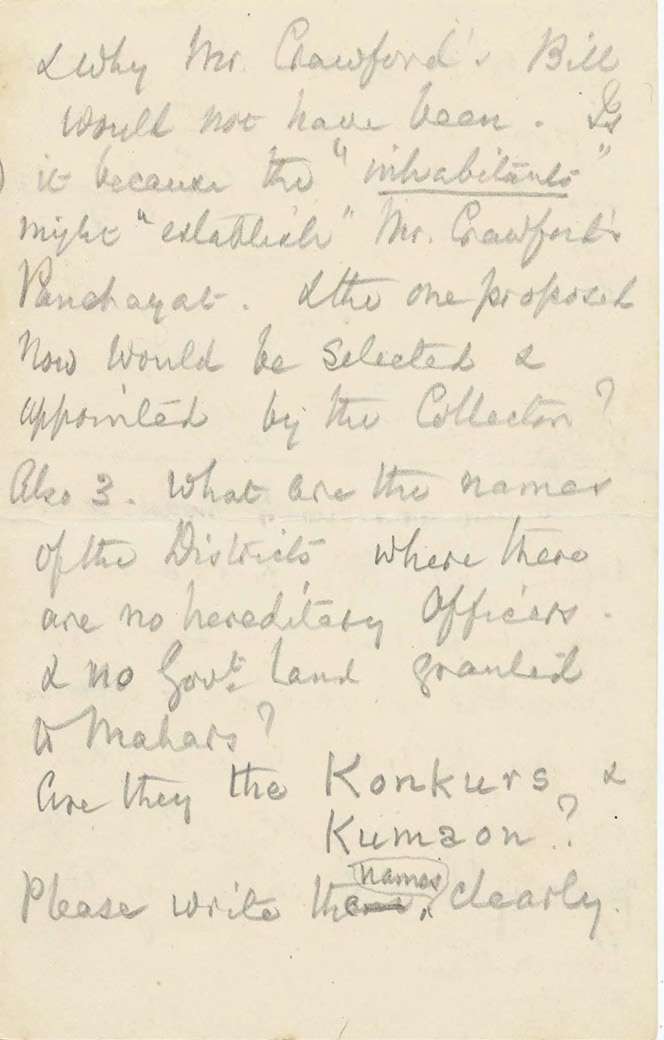 & why Mr. Crawford's Bill
would not have been. Is
it because the "inhabitants"
might "establish" Mr. Crawford's
Panchayat. & the one proposed
now would be selected &
appointed by the Collector?
Also 3. What are the names
of the Districts where there
are no hereditary Officers.
& no Govt. land granted
to Mahars?
Are they the Konkurs &
Kumaon?
names
Please write the, clearly.